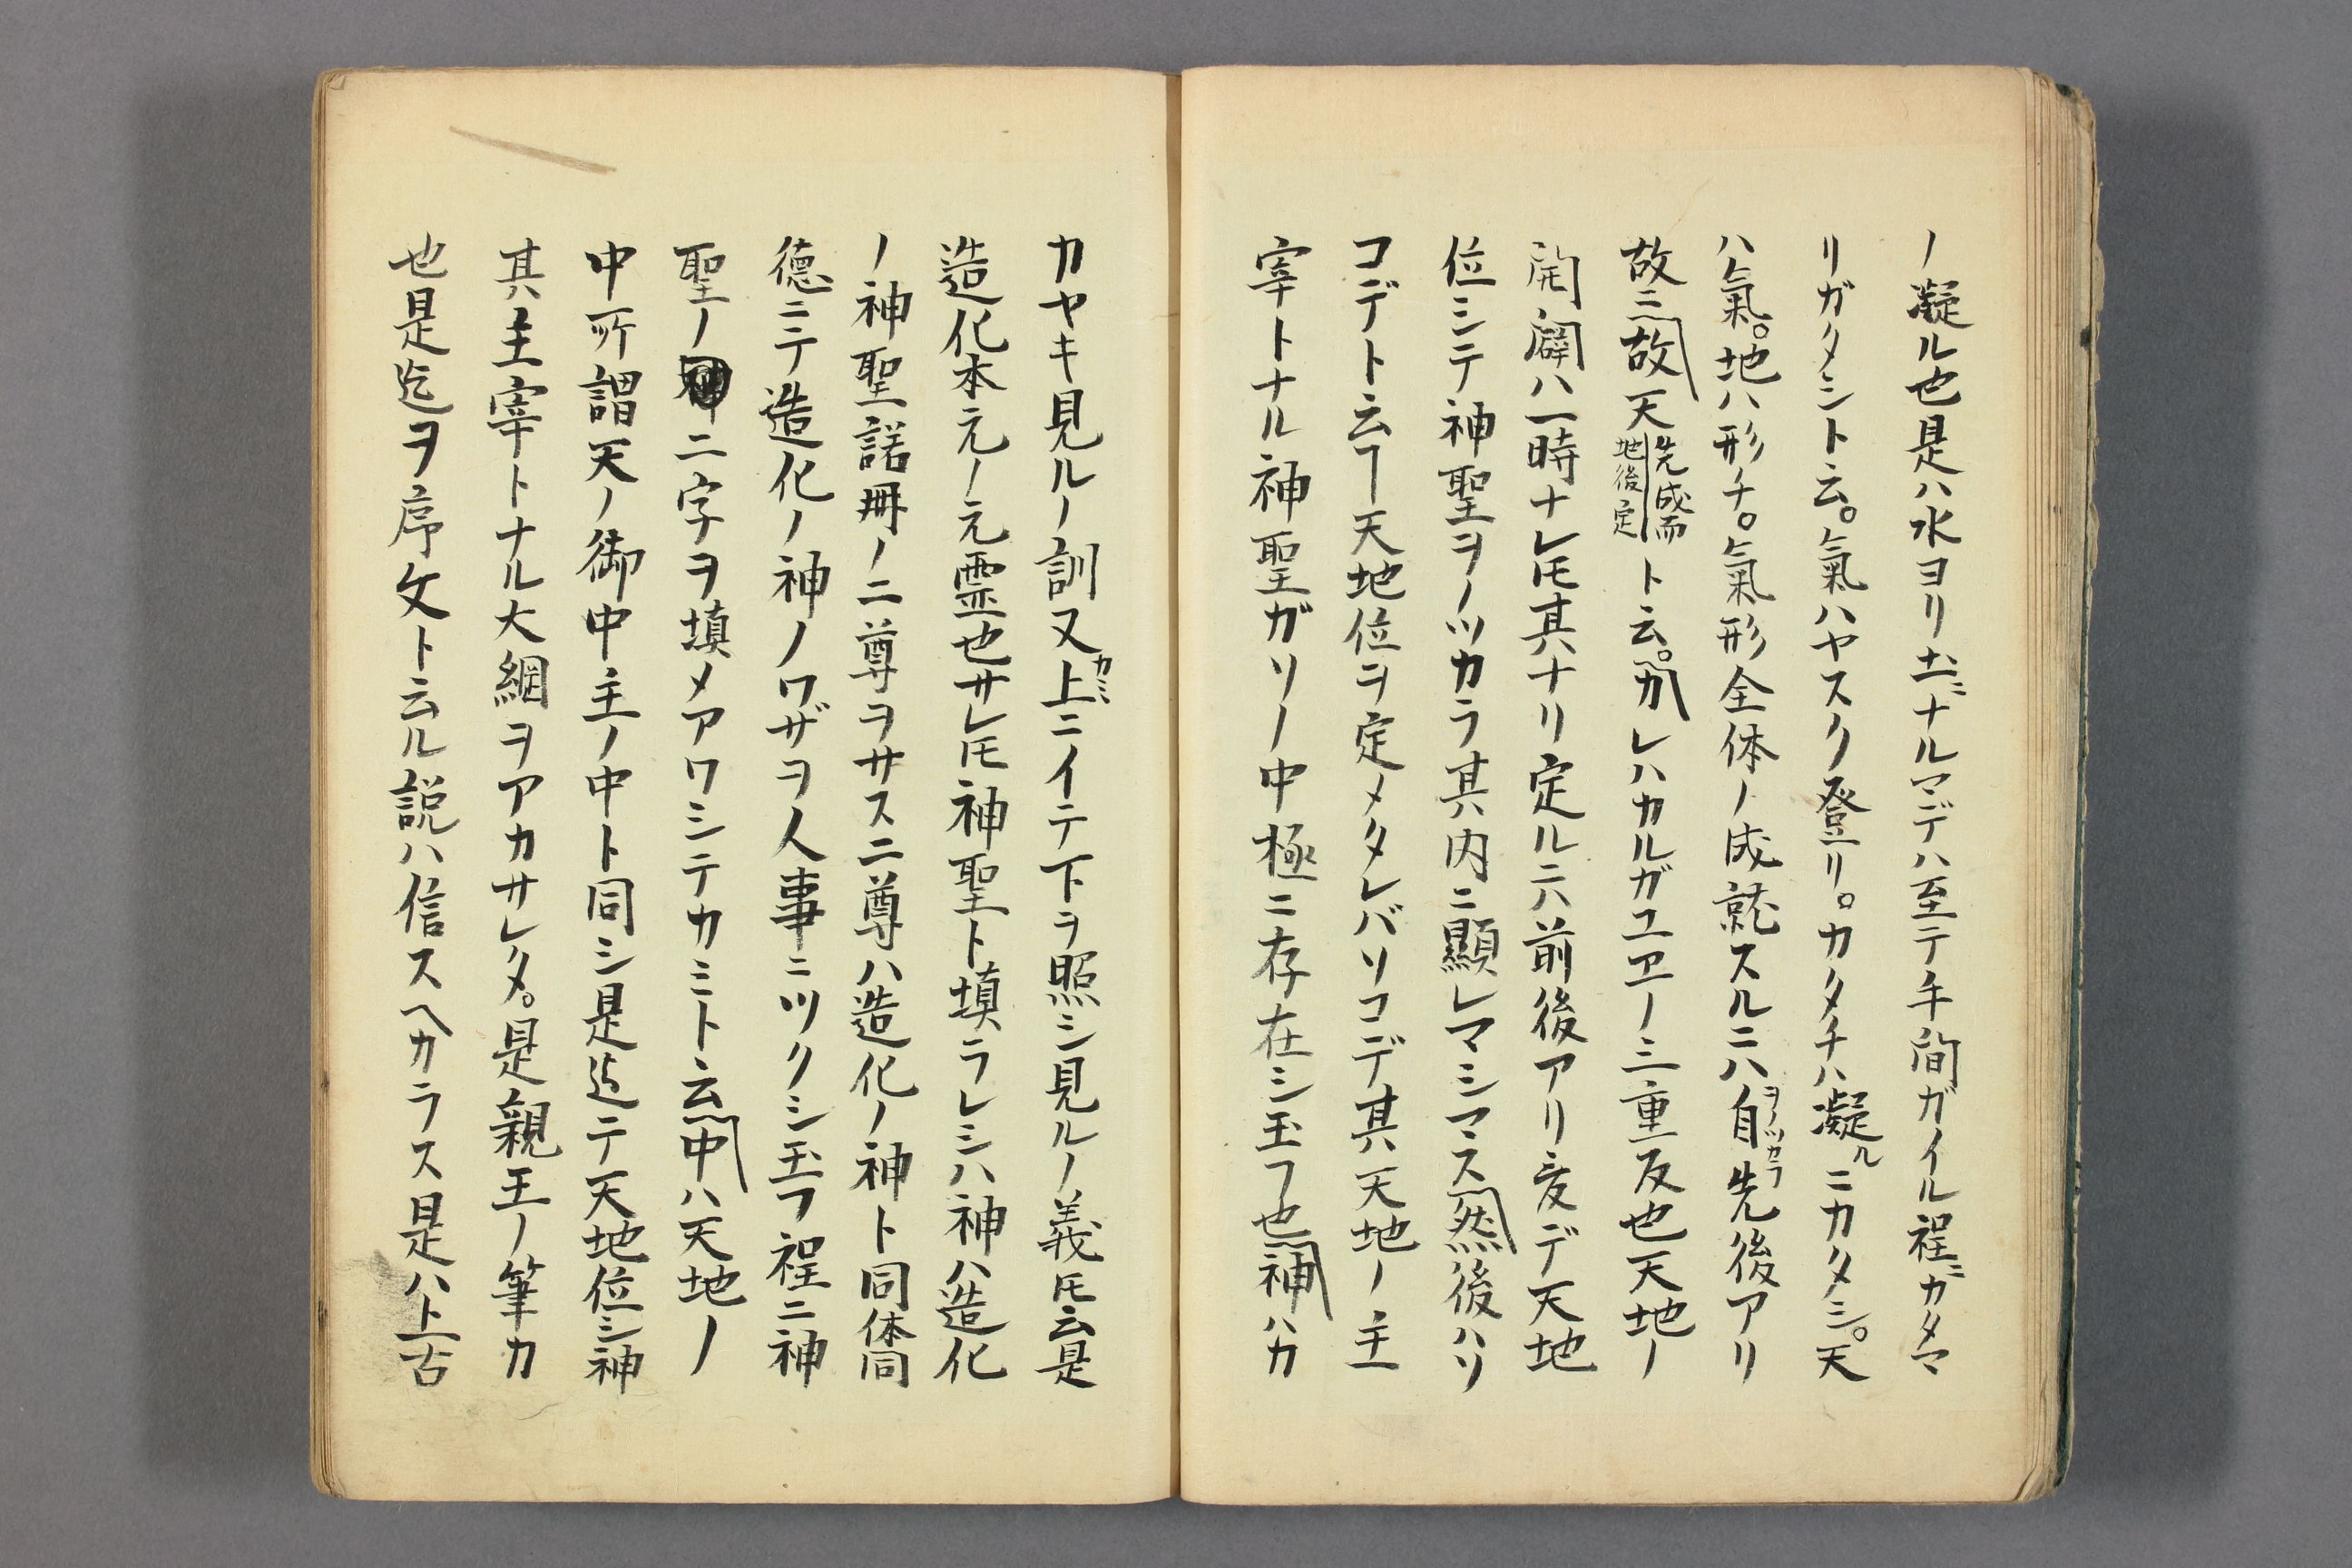 ノ凝ル也是ハ水ヨリ土ニナルマデハ至テ手間ガイル程ニガタマ
リガタシト云。氣ハヤスク登リ。カタチハ凝ルニカタシ。天
ハ氣。地ハ形チ。氣形全体ノ成就スルニハ自ヲノツカラ先後アリ
故ニ故天先成而地後定ト云。カレハカルガユヱノ三重反也天地ノ
開闢ハ一時ナレ𪜈其ナリ定ルニハ前後アリ爰デ天地
位シテ神聖ヲノツカラ其内ニ顯レマシマス然後ハソ
コデト云ヿ天地位ヲ定メタレバソコデ其天地ノ主
宰トナル神聖ガソノ中極ニ存在シ玉フ也神ハカ
カヤキ見ルノ訓又上カミニイテ下ヲ照シ見ルノ義𪜈云是
造化本元ノ元霊也サレ𪜈神聖ト填ラレシハ神ハ造化
ノ神聖諾冊ノ二尊ヲサス二尊ハ造化ノ神ト同体同
德ニテ造化ノ神ノワザヲ人事ニツクシ玉フ程ニ神
聖ノ二字ヲ填メアワシテカミト云中ハ天地ノ
中所謂天ノ御中主ノ中ト同シ是迄ニテ天地位シ神
其主宰トナル大綱ヲアカサレタ。是親王ノ筆カ
也是迄ヲ序文ト云ル説ハ信スヘカラス是ハ上古